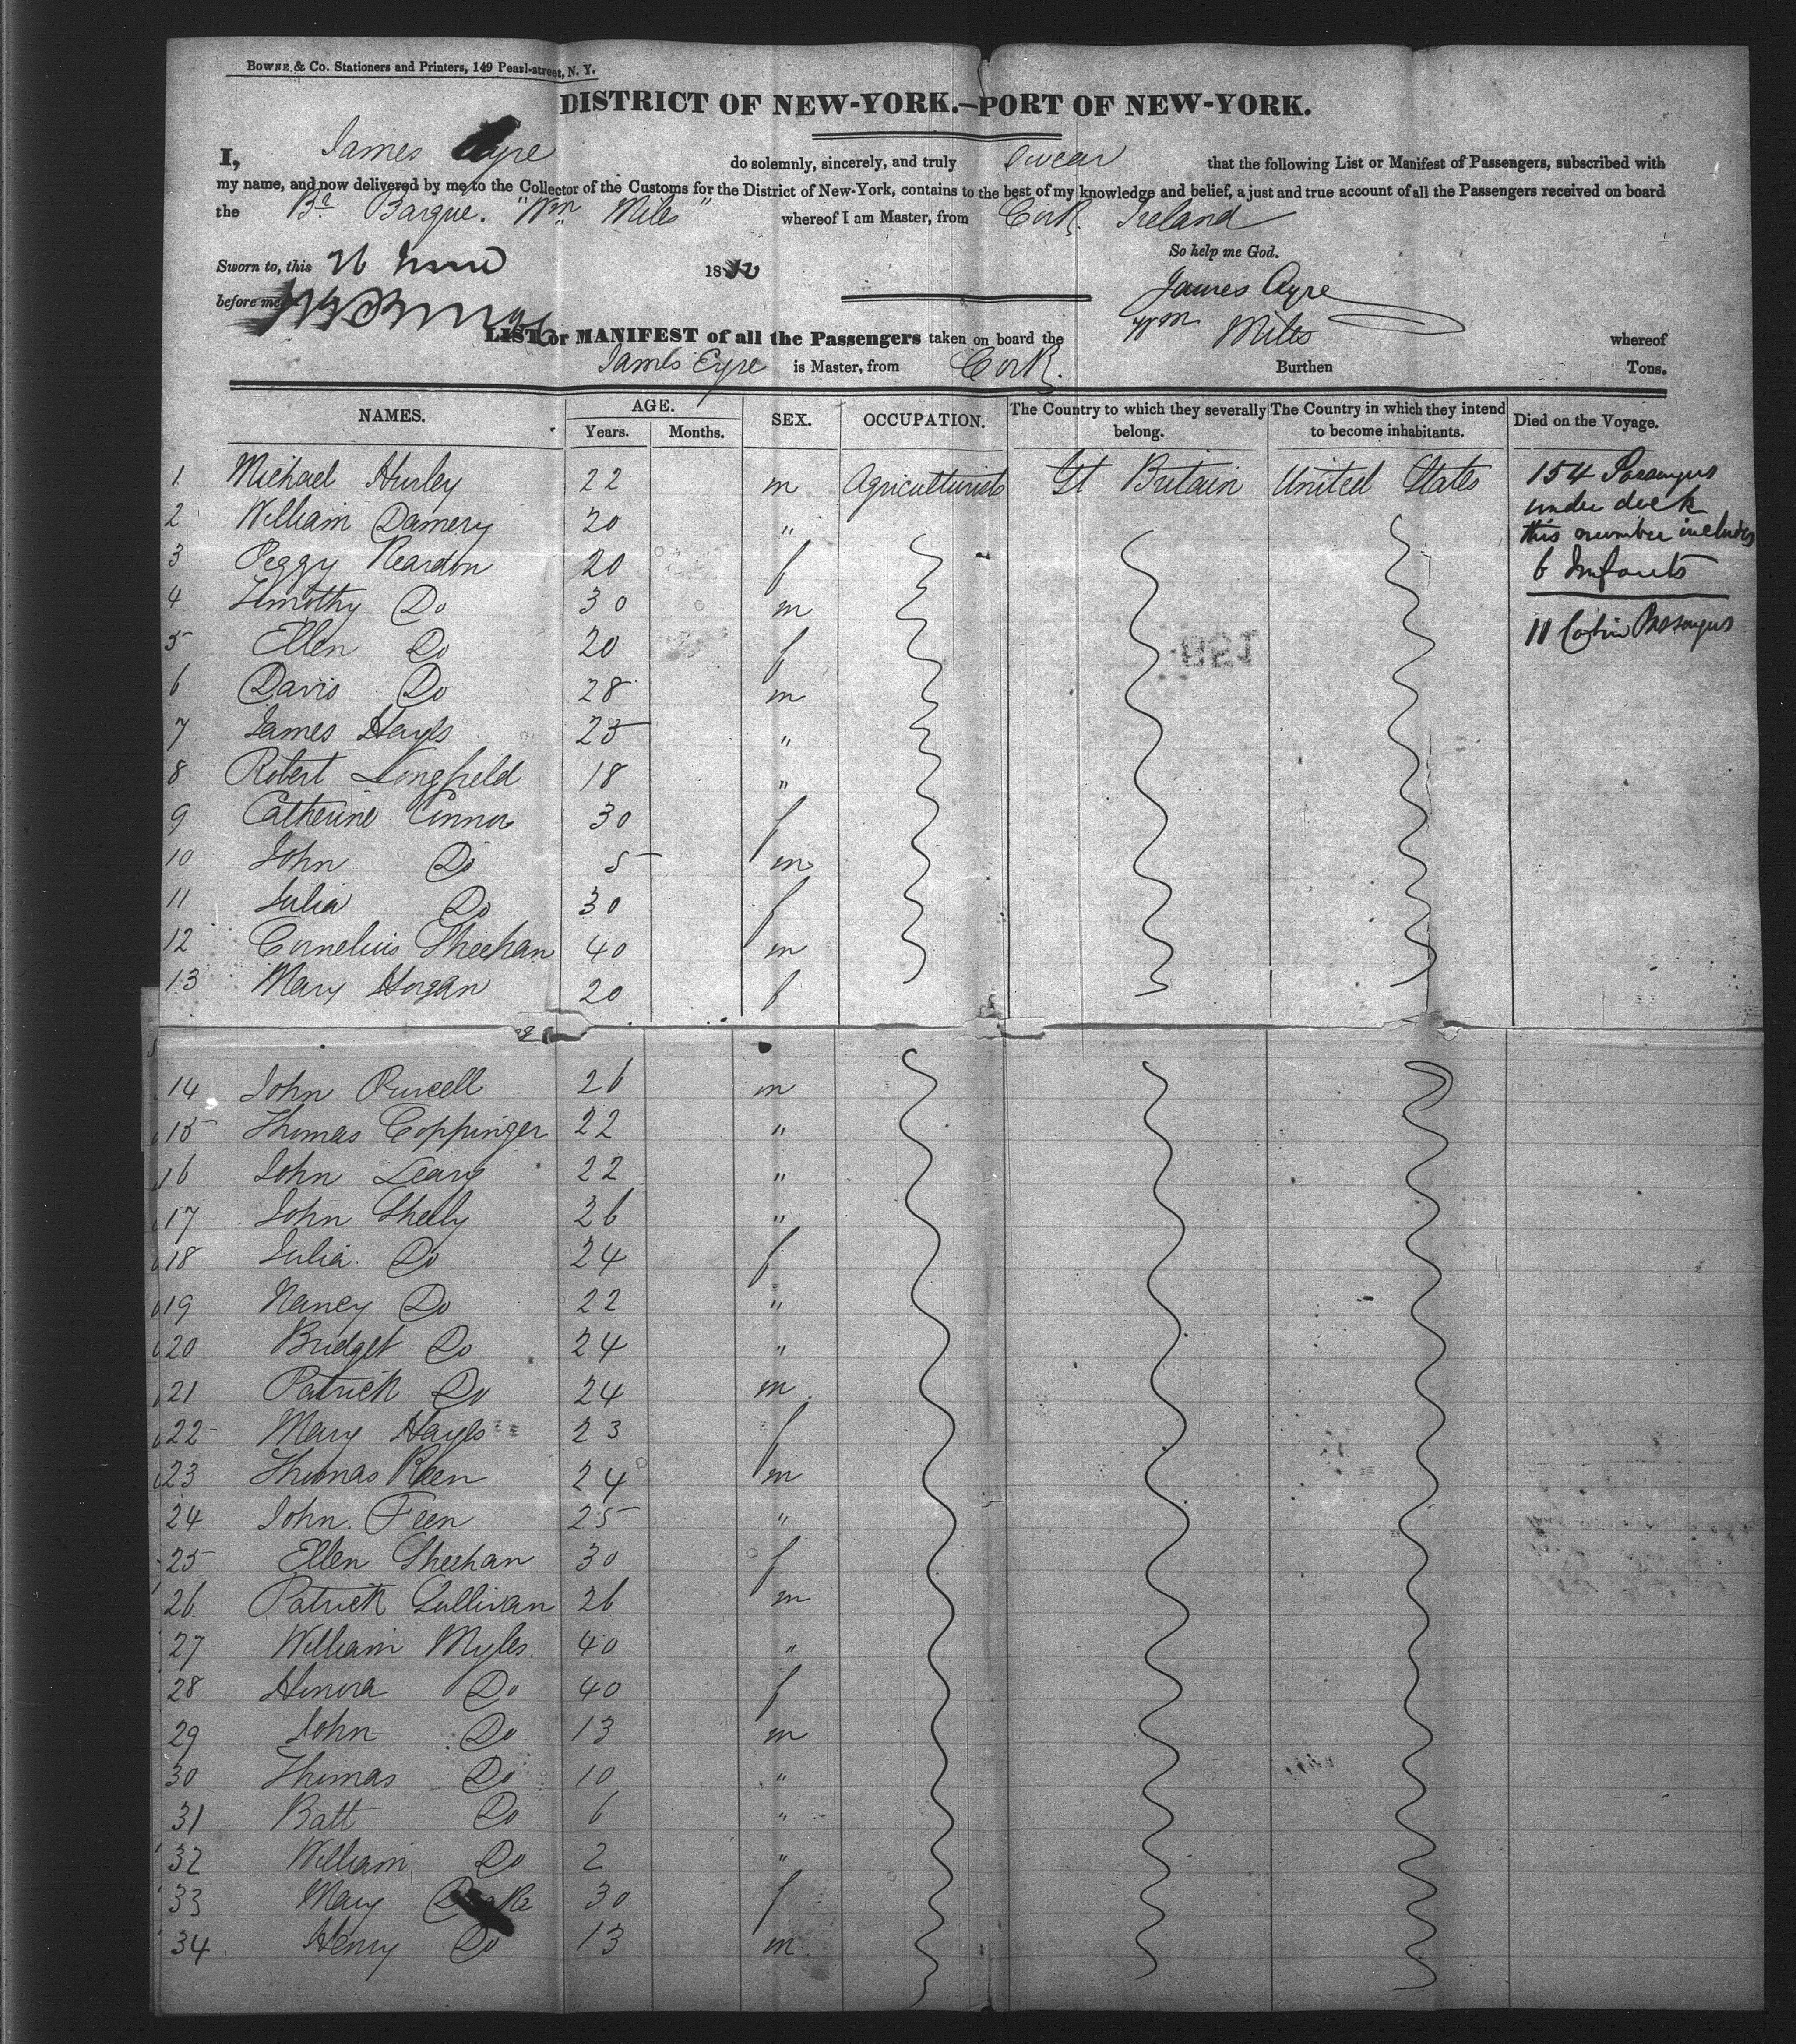 BOWNE & Co. Stationers and Printers, 149 Pearl-street, N. Y.
DISTRICT OF NEW-YORK.—PORT OF NEW-YORK.
I, James Ayre do solemnly, sincerely, and truly swear that the following List or Manifest of Passengers, subscribed with
my name, and now delivered by me to the Collector of the Customs for the District of New-York, contains to the best of my knowledge and belief, a just and true account of all the Passengers received on board
the Br Barque. "Wm Miles" whereof I am Master, from Cork Ireland
So help me God.
Sworn to, this 26 June 18
James Ayre
before me
LIST or MANIFEST of all the Passengers taken on board the Wm Miles whereof
James Eyre is Master, from Cork. Burthen Tons.
NAMES. AGE. Years. Months. SEX. OCCUPATION. The Country to which they severally belong. The Country in which they intend to become inhabitants. Died on the Voyage.
1 Michael Hurley 22 m Agriculturists Gt Britain United States
2 William Damery 20 "
3 Peggy Reardon 20 f
4 Timothy Do 30 m
5 Ellen Do 20 f
6 Davis Do 28 m
7 James Hayes 25 "
8 Robert Longfield 18 "
9 Catherine Connor 30 f
10 John Do 5 m
11 Julia Do 30 f
12 Cornelius Sheehan 40 m
13 Mary Horgan 20 f
154 Passengers
under deck
this number includes
6 Infants
11 Cabin Passengers
14 John Purcell 26 m
15 Thomas Coppinger 22 "
16 John Leary 22 "
17 John Sheely 26 "
18 Julia. Do 24 f
19 Nancy Do 22 "
20 Bridget Do 24 "
21 Patrick Do 24 m
22 Mary Hayes 23 f
23 Thomas Keen 24 m
24 John. Feen 25 "
25 Ellen Sheehan 30 f
26 Patrick Sullivan 26 m
27 William Myles. 40 "
28 Honora Do 40 f
29 John Do 13 m
30 Thomas Do 10 "
31 Batt Do 6 "
32 William Do 2 "
33 Mary 30 f
34 Henry Do 13 m